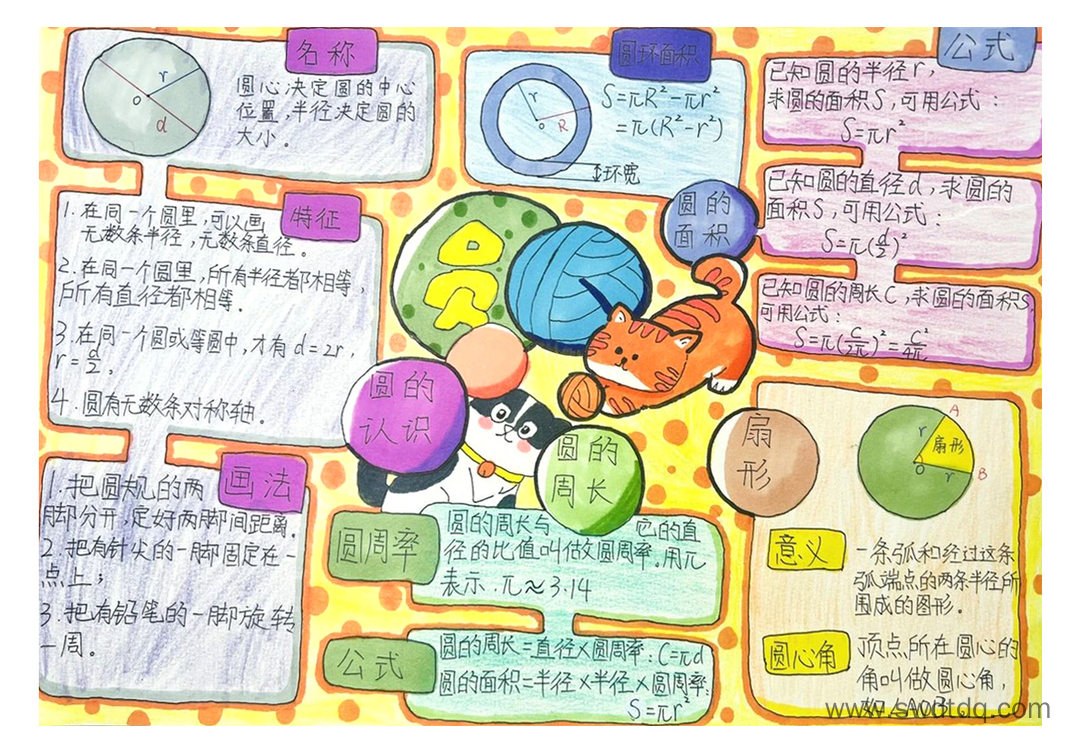 名称
圆心决定圆的中心
位置,半径决定圆的
大小。
r
o
d
特征
1.在同一个圆里,可以画
无数条半径,无数条直径。
2.在同一个圆里,所有半径都相等,
所有直径都相等.
3.在同一个圆或等圆中,才有d=2r,
r=d/2。
4.圆有无数条对称轴。
画法
1.把圆规的两
脚分开,定好两脚间距离.
2.把有针尖的一脚固定在一
点上;
3.把有铅笔的一脚旋转
一周。
圆环面积
S=πR²-πr²
=π(R²-r²)
r
R
o
环宽
圆的
面积
公式
已知圆的半径r,
求圆的面积S,可用公式:
S=πr²
已知圆的直径d,求圆的
面积S,可用公式:
S=π(d/2)²
已知圆的周长C,求圆的面积S,
可用公式:
S=π(C/2π)²=C²/4π
圆的
认识
圆的
周长
圆周率
圆的周长与 它的直
径的比值叫做圆周率.用π
表示.π≈3.14
公式
圆的周长=直径×圆周率:C=πd
圆的面积=半径×半径×圆周率:
S=πr²
扇
形
A
r
扇形
O
r
B
意义
一条弧和经过这条
弧端点的两条半径所
围成的图形。
圆心角
顶点所在圆心的
角叫做圆心角,
如∠AOB.